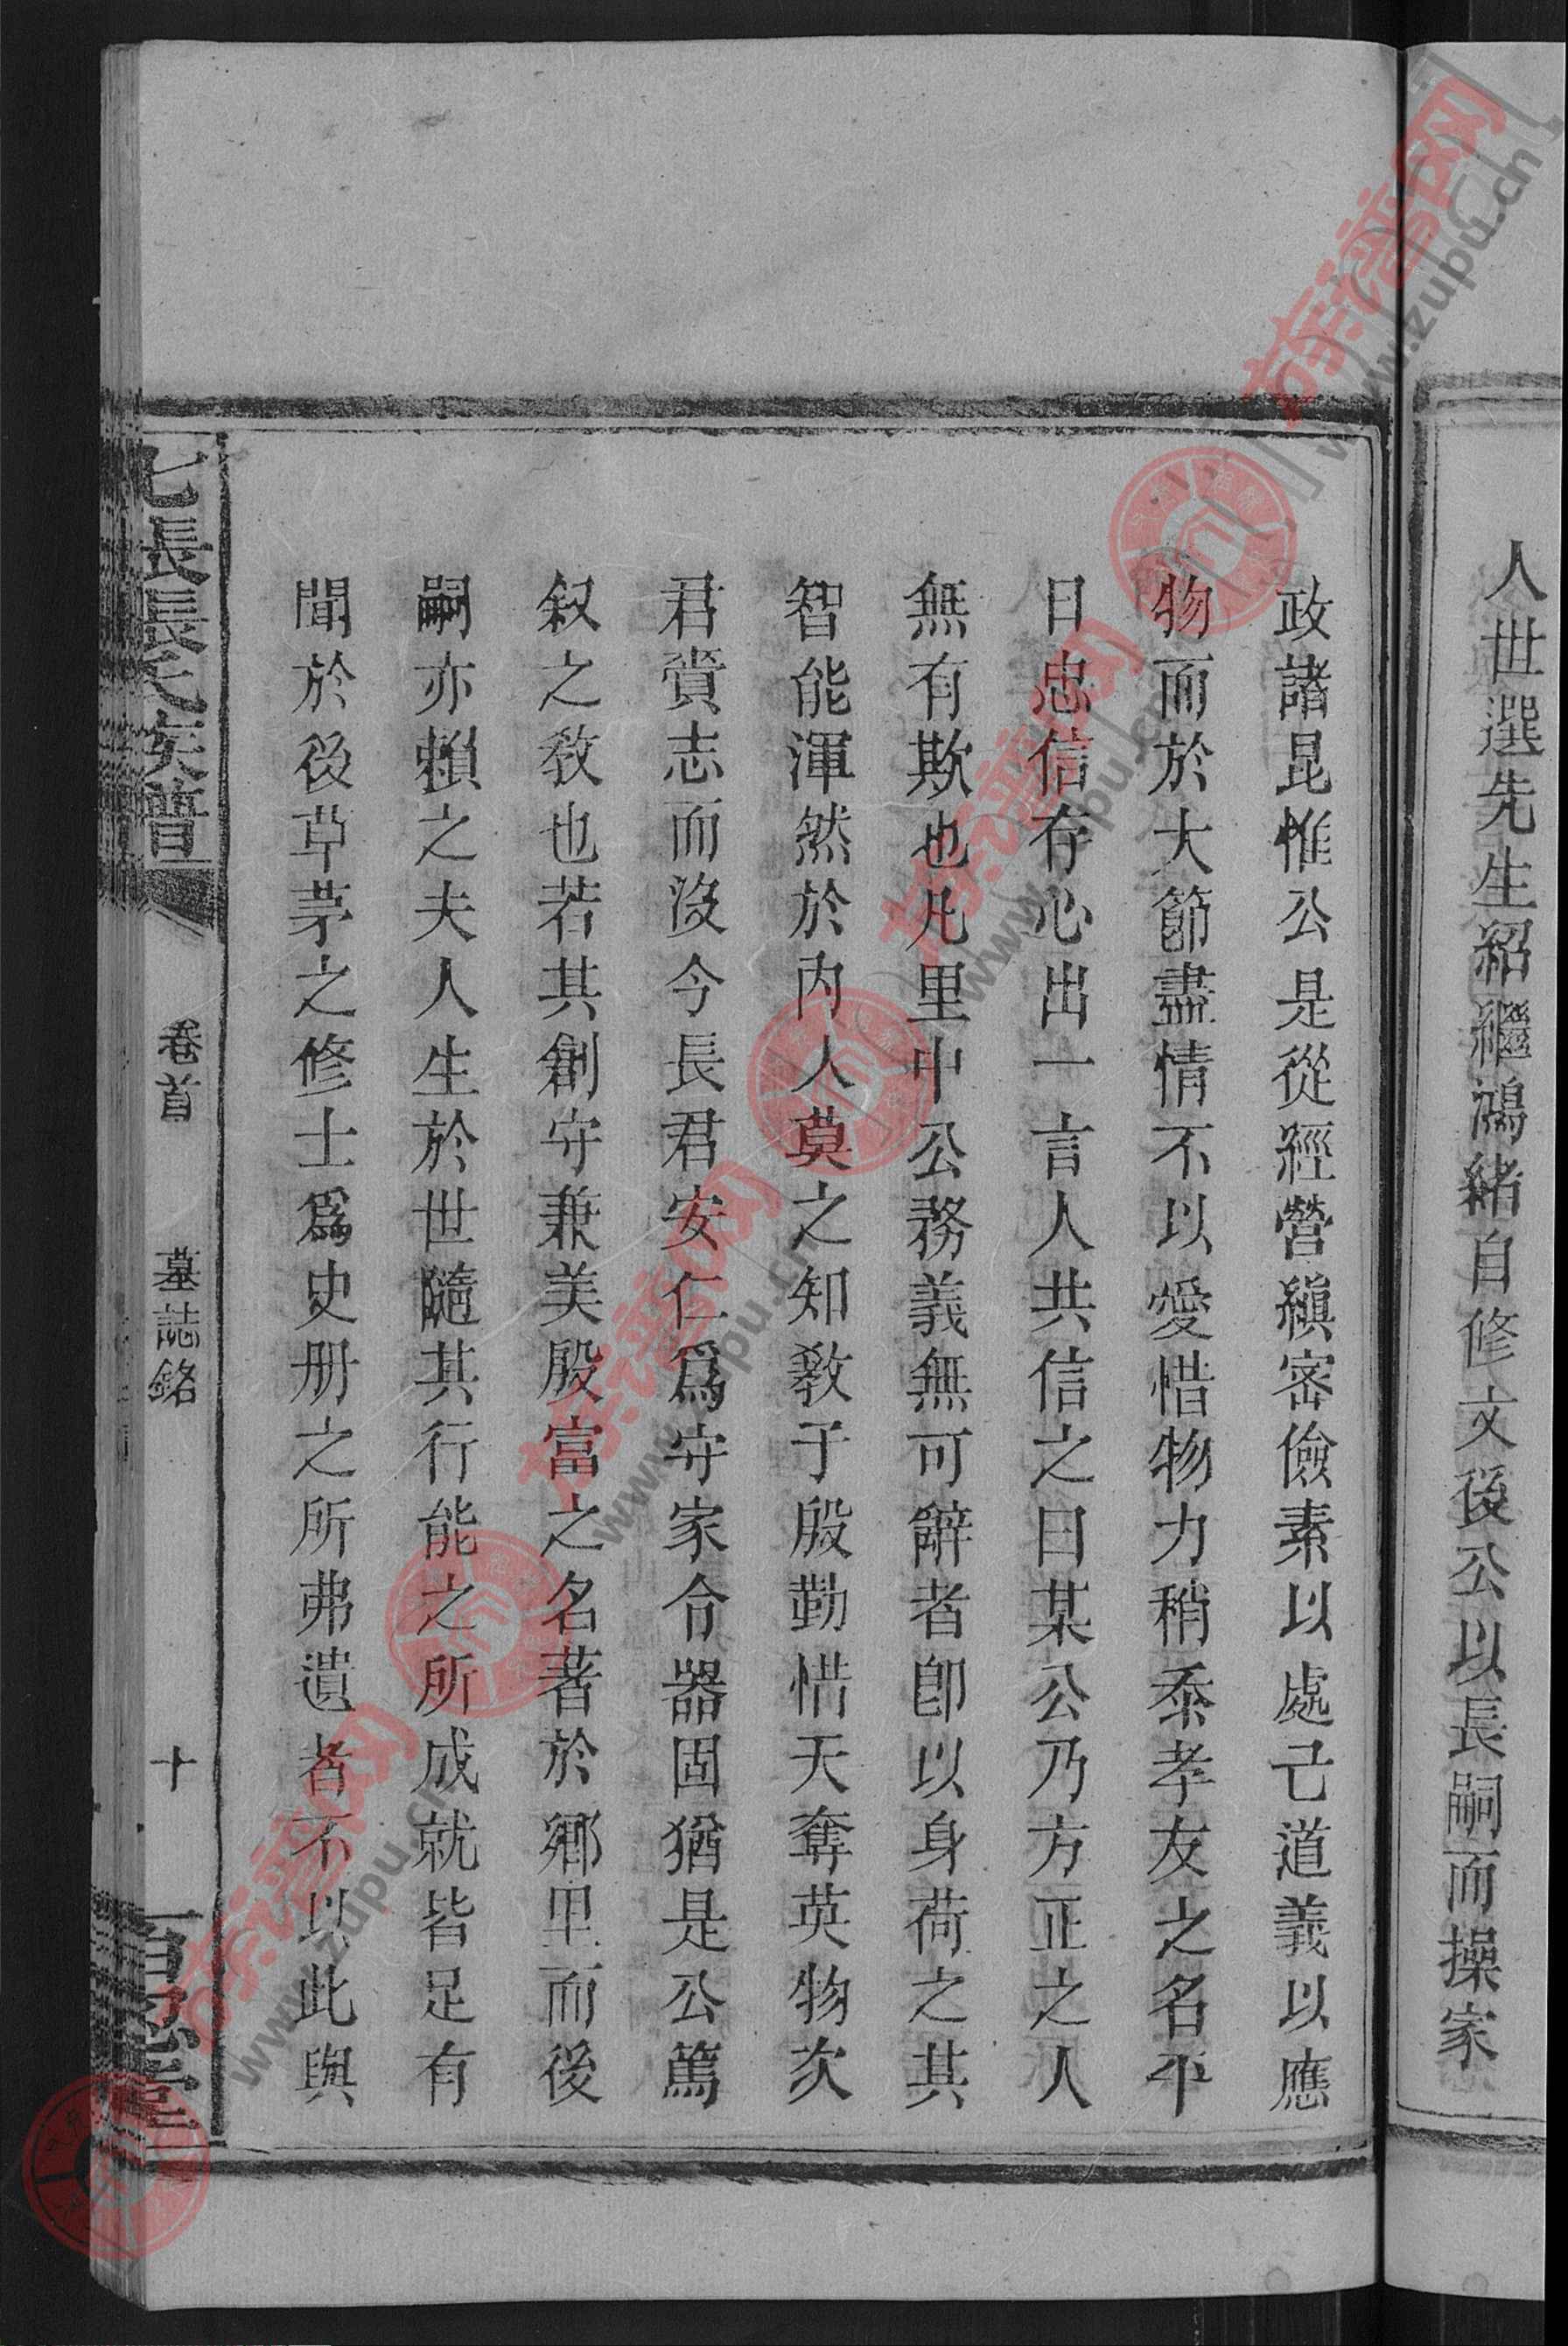 人世選先生紹繼鴻緒自修文後公以長嗣而操家
政諸昆惟公是從經營縝密儉素以處己道義以應
物而於大節盡情不以愛惜物力稍忝孝友之名平
日忠信存心出一言人共信之曰某公乃方正之人
無有欺也凡里中公務義無可辭者卽以身荷之其
智能渾然於內人莫之知敎于殷勤惜天奪英物次
君賫志而沒今長君安仁爲守家令器固猶是公篤
叙之敎也若其創守兼美殷富之名著於鄉里而後
嗣亦賴之夫人生於世隨其行能之所成就皆足有
聞於後草茅之修士爲史册之所弗遺者不以此與
長長氏族譜
卷首
墓誌銘
十
忍堂
族谱网
www.zupu.cn
族谱网
www.zupu.cn
族谱网
www.zupu.cn
族谱网
www.zupu.cn